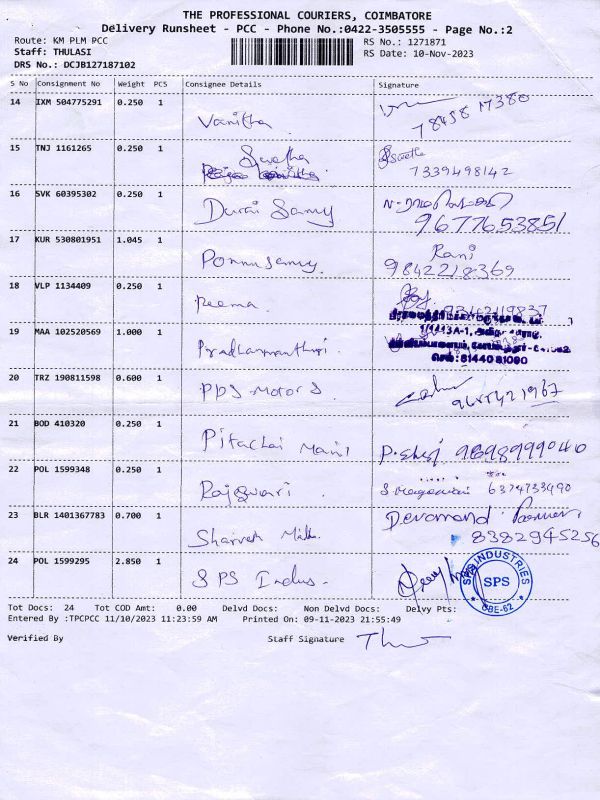 THE PROFESSIONAL COURIERS, COIMBATORE
Delivery Runsheet - PCC - Phone No.:0422-3505555 - Page No.:2
Route: KM PLM PCC
Staff: THULASI
DRS No.: DCJB127187102
RS No.: 1271871
RS Date: 10-Nov-2023
S No Consignment No Weight PCS Consignee Details Signature
14 IXM 504775291 0.250 1 Vanitha
15 TNJ 1161265 0.250 1 Swetha Swetha
7339498142
16 SVK 60395302 0.250 1 Durai Samy
9677653851
17 KUR 530801951 1.045 1 Ponnusamy Rani
9842218369
18 VLP 1134409 0.250 1 Reema
19 MAA 102520569 1.000 1
20 TRZ 190811598 0.600 1 PPS Motors
21 BOD 410320 0.250 1 Pitachai Mani
22 POL 1599348 0.250 1 Rajeswari 6374733490
23 BLR 1401367783 0.700 1 Sharveh Milk
8382945256
24 POL 1599295 2.850 1 SPS Indus.
SPS INDUSTRIES
SPS
CBE-62
Tot Docs: 24 Tot COD Amt: 0.00 Delvd Docs: Non Delvd Docs: Delvy Pts:
Entered By :TPCPCC 11/10/2023 11:23:59 AM Printed On: 09-11-2023 21:55:49
Verified By Staff Signature